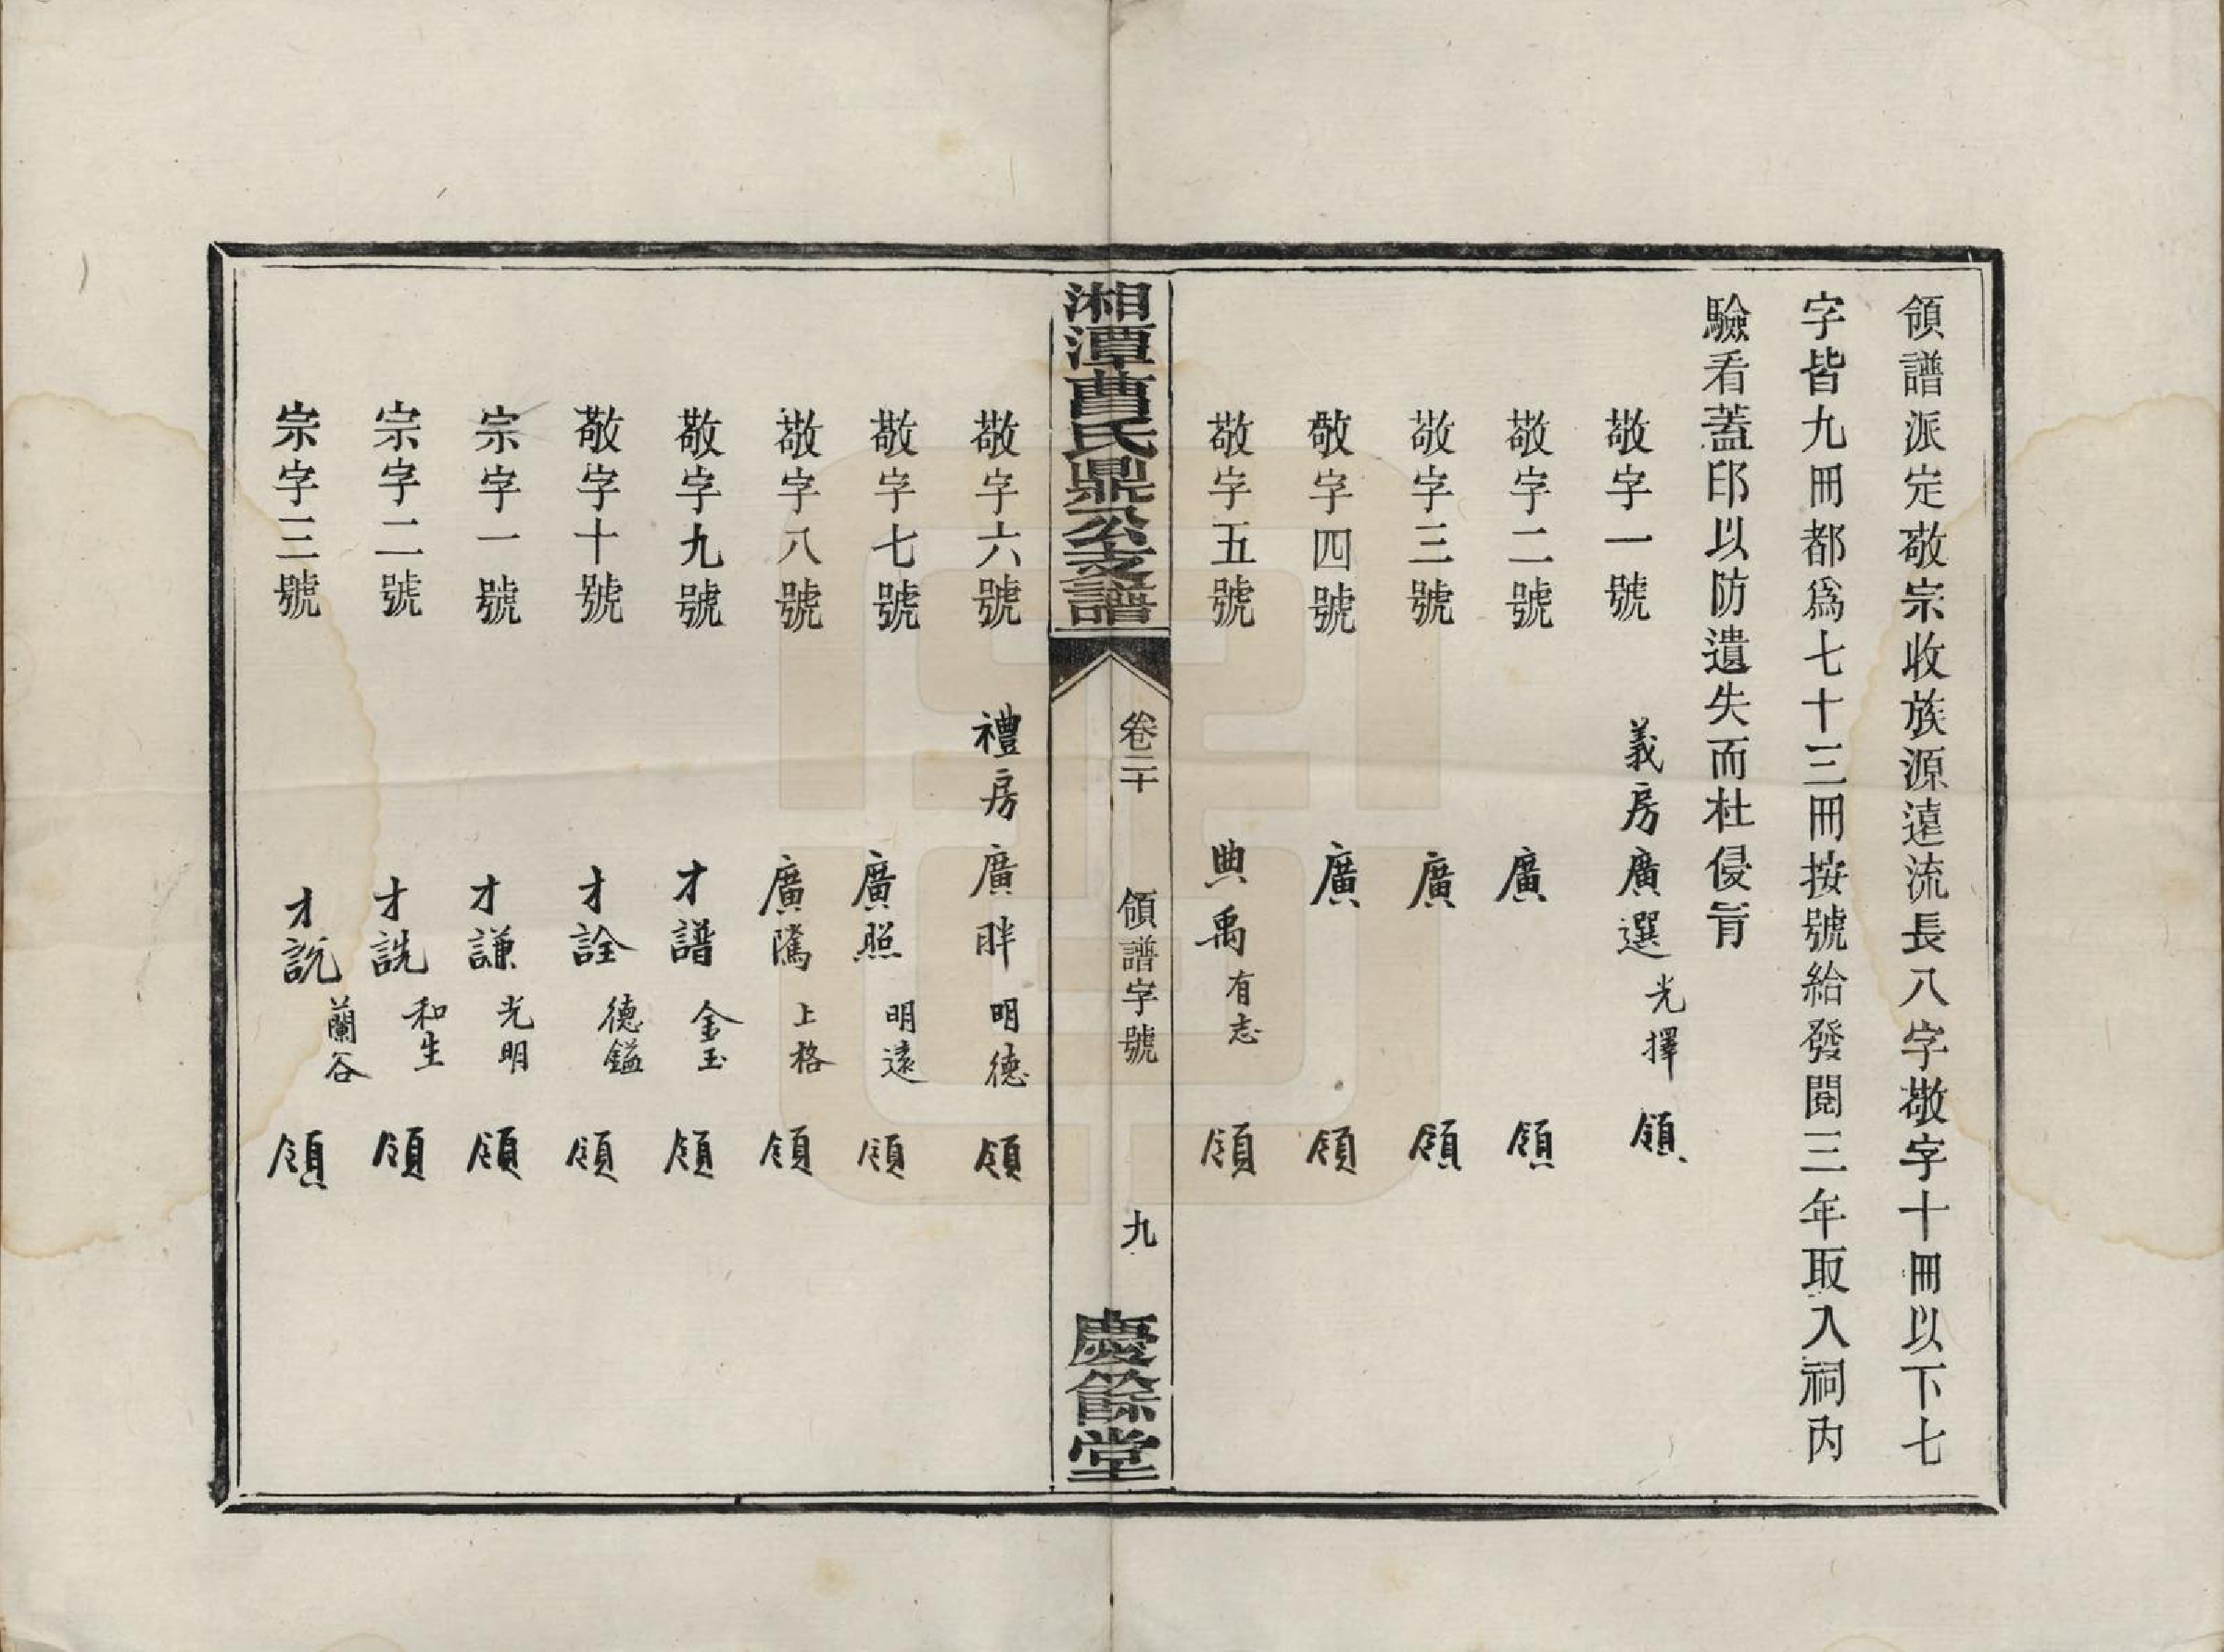 領譜派定敬宗收族源遠流長八字敬字十冊以下七
字皆九冊都爲七十三冊按號給發閱三年取入祠內
驗看蓋印以防遺失而杜侵冐
敬字一號 義房廣選光擇 領
敬字二號 廣 領
敬字三號 廣 領
敬字四號 廣 領
敬字五號 典禹有志 領
湘潭曹氏鼎公支譜 卷二十 領譜字號 九 慶餘堂
敬字六號 禮房廣胖明德 領
敬字七號 廣照明遠 領
敬字八號 廣騰上格 領
敬字九號 才譜金玉 領
敬字十號 才詮德鎰 領
宗字一號 才謙光明 領
宗字二號 才詵和生 領
宗字三號 才說蘭谷 領